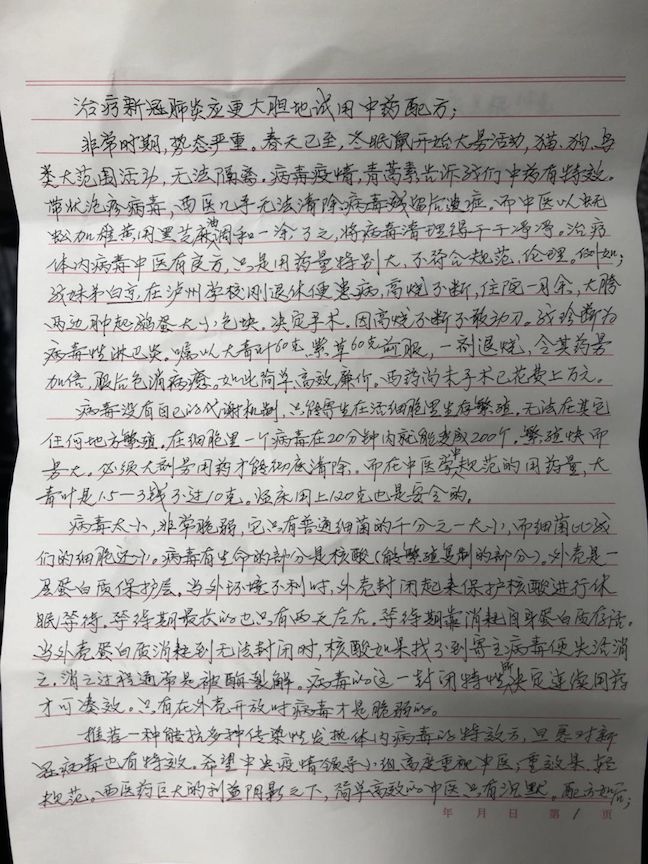 治疗新冠肺炎应更大胆地试用中药配方;
非常时期,势态严重。春天已至,冬眠开始大量活动,猫、狗、鸟
类大范围活动,无法隔离。病毒疫情,青蒿素告诉我们中药有特效。
带状泡疹病毒,西医几乎无法清除病毒残留后遗症。而中医以
蚣加雄黄用黑芝麻油调和一涂了之,将病毒清理得干干净净。治疗
体内病毒中医有良方,只是用药量特别大,不符合规范,伦理。例如;
我妹弟白京,在泸州学校刚退休便患病,高烧不断,住院一月余,大胯
两边肿起鹅蛋大小包块。决定手术。因高烧不断不敢动刀。我珍断为
病毒性淋巴炎。嘱以大青叶60克.紫草60克煎服,一剂退烧,令其药量
加倍,服后包消病癒。如此简单,高效,廉价。西药尚未手术已花费上万元。
病毒没有自己的代谢机制,只能寄生在活细胞里生存繁殖,无法在其它
任何地方繁殖。在细胞里一个病毒在20分钟内就能变成200个。繁殖快而
量大。必须大剂量用药才能彻底清除。而在中医学中规范的用药量,大
青叶是1.5—3钱不过10克。临床用上120克也是安全的。
病毒太小,非常脆弱,它只有普通细菌的千分之一大小,而细菌比我
们的细胞还小。病毒有生命的部分是核酸(能繁殖复制的部分)。外壳是一
层蛋白质保护层。当外环境不利时,外壳封闭起来保护核酸进行休
眠等待。等待期最长的也只有两天左右。等待期靠消耗自身蛋白质存活。
当外壳蛋白质消耗到无法封闭时,核酸如果找不到寄主病毒便失活消
亡。消亡过程通常是被酶裂解。病毒的这一封闭特性所决定连续用药
才可凑效。只有在外壳开放时病毒才是脆弱的。
推荐一种能抗多种传染性发热体内病毒的特效方,对新
冠病毒也有特效。希望中央疫情领导小组高度重视中医,重效果、轻
规范。西医药巨大的利益阴影之下,简单高效的中医只有沉默。配方如后;
年 月 日 第 1 页